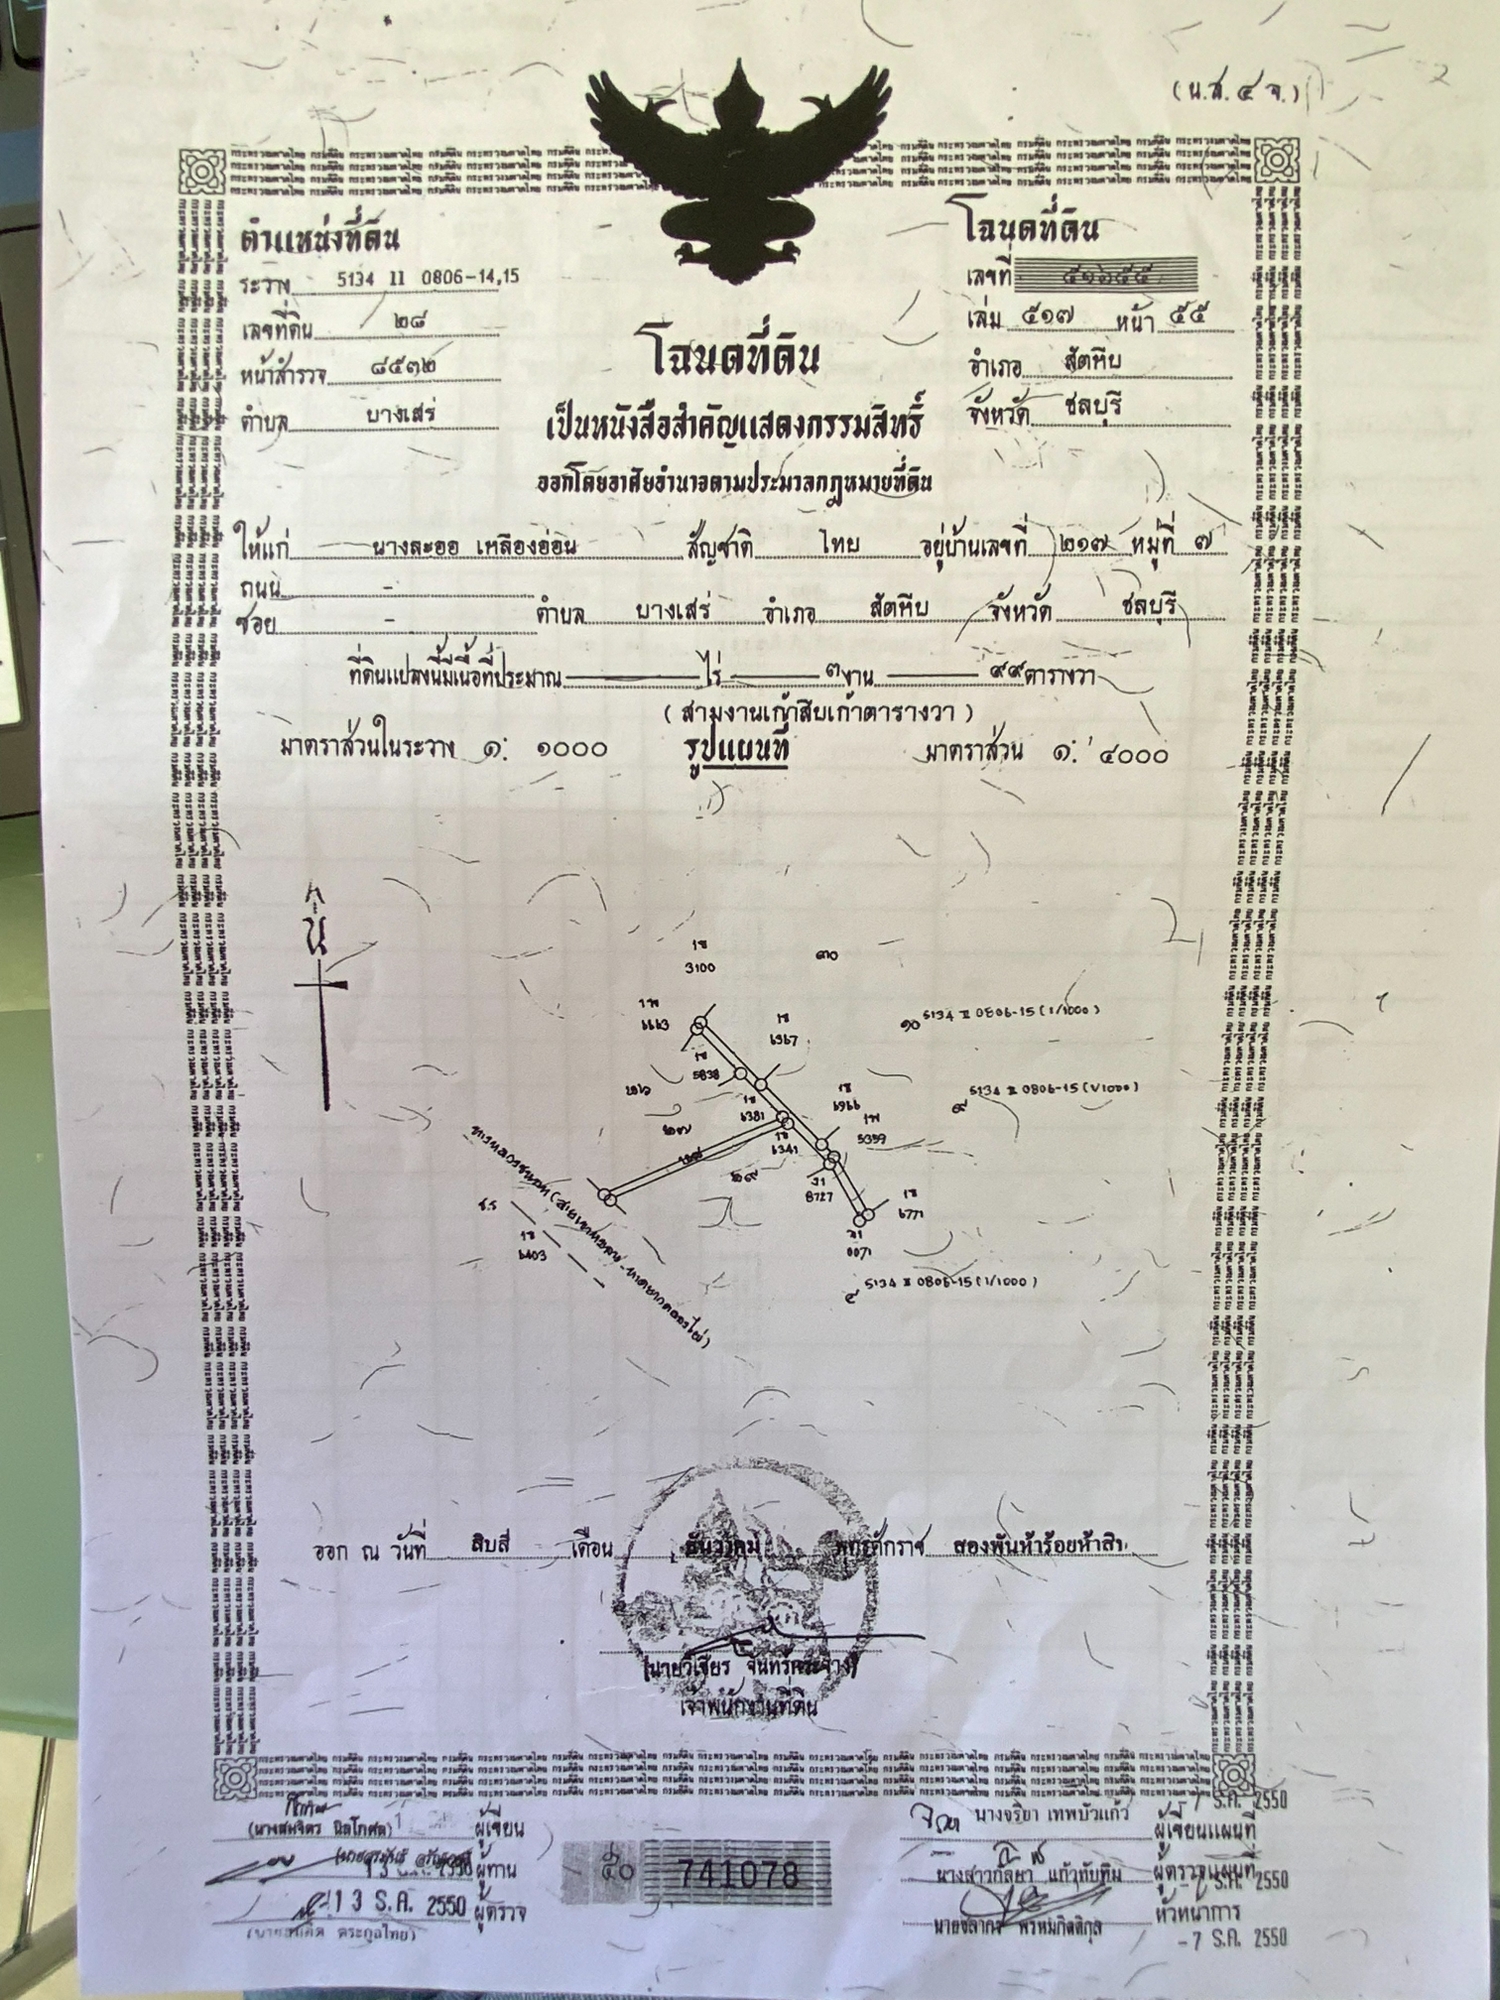 (น.ส.๔ จ.)
ตำแหน่งที่ดิน
ระวาง 5134 II 0806-14,15
เลขที่ดิน ๒๘
หน้าสำรวจ ๘๕๓๒
ตำบล บางเสร่
โฉนดที่ดิน
เลขที่
เล่ม ๕๑๗ หน้า ๕๕
อำเภอ สัตหีบ
จังหวัด ชลบุรี
โฉนดที่ดิน
เป็นหนังสือสำคัญแสดงกรรมสิทธิ์
ออกโดยอาศัยอำนาจตามประมวลกฎหมายที่ดิน
ให้แก่ นางละออ เหลืองอ่อน สัญชาติ ไทย อยู่บ้านเลขที่ ๒๑๗ หมู่ที่ ๗
ถนน -
ซอย - ตำบล บางเสร่ อำเภอ สัตหีบ จังหวัด ชลบุรี
ที่ดินแปลงนี้มีเนื้อที่ประมาณ ไร่ ๓ งาน ๙๙ ตารางวา
(สามงานเก้าสิบเก้าตารางวา)
มาตราส่วนในระวาง ๑: ๑๐๐๐ รูปแผนที่ มาตราส่วน ๑: ๔๐๐๐
น
1ข
3100
๓๐
1พ
6663
1ข
6967
๑๐ 5134 II 0806-15 (1/1000)
1ข
5838
๒๖
1ข
6966
๙ 5134 II 0806-15 (1/1000)
1ข
6381
๒๗
1พ
5359
1ข
6341
๒๘
๒๙
ว1
8727
1ข
6771
1ข
6403
ว1
0071
๔ 5134 II 0806-15 (1/1000)
ออก ณ วันที่ สิบสี่ เดือน ธันวาคม พุทธศักราช สองพันห้าร้อยห้าสิบ
(นายวิเชียร จันทร์กระจ่าง)
เจ้าพนักงานที่ดิน
(นางสมจิตร นิลโกศล) ผู้เขียน
13 2550 ผู้ทาน
13 ธ.ค. 2550 ผู้ตรวจ
ตระกูลไทย)
๕๐ 741078
7 ธ.ค. 2550
นางจริยา เทพบัวแก้ว ผู้เขียนแผนที่
นางสาวกัลยา แก้วทับทิม ผู้ตรวจแผนที่
ธ.ค. 2550
พรหมกิตติกุล หัวหน้าการ
-7 ธ.ค. 2550